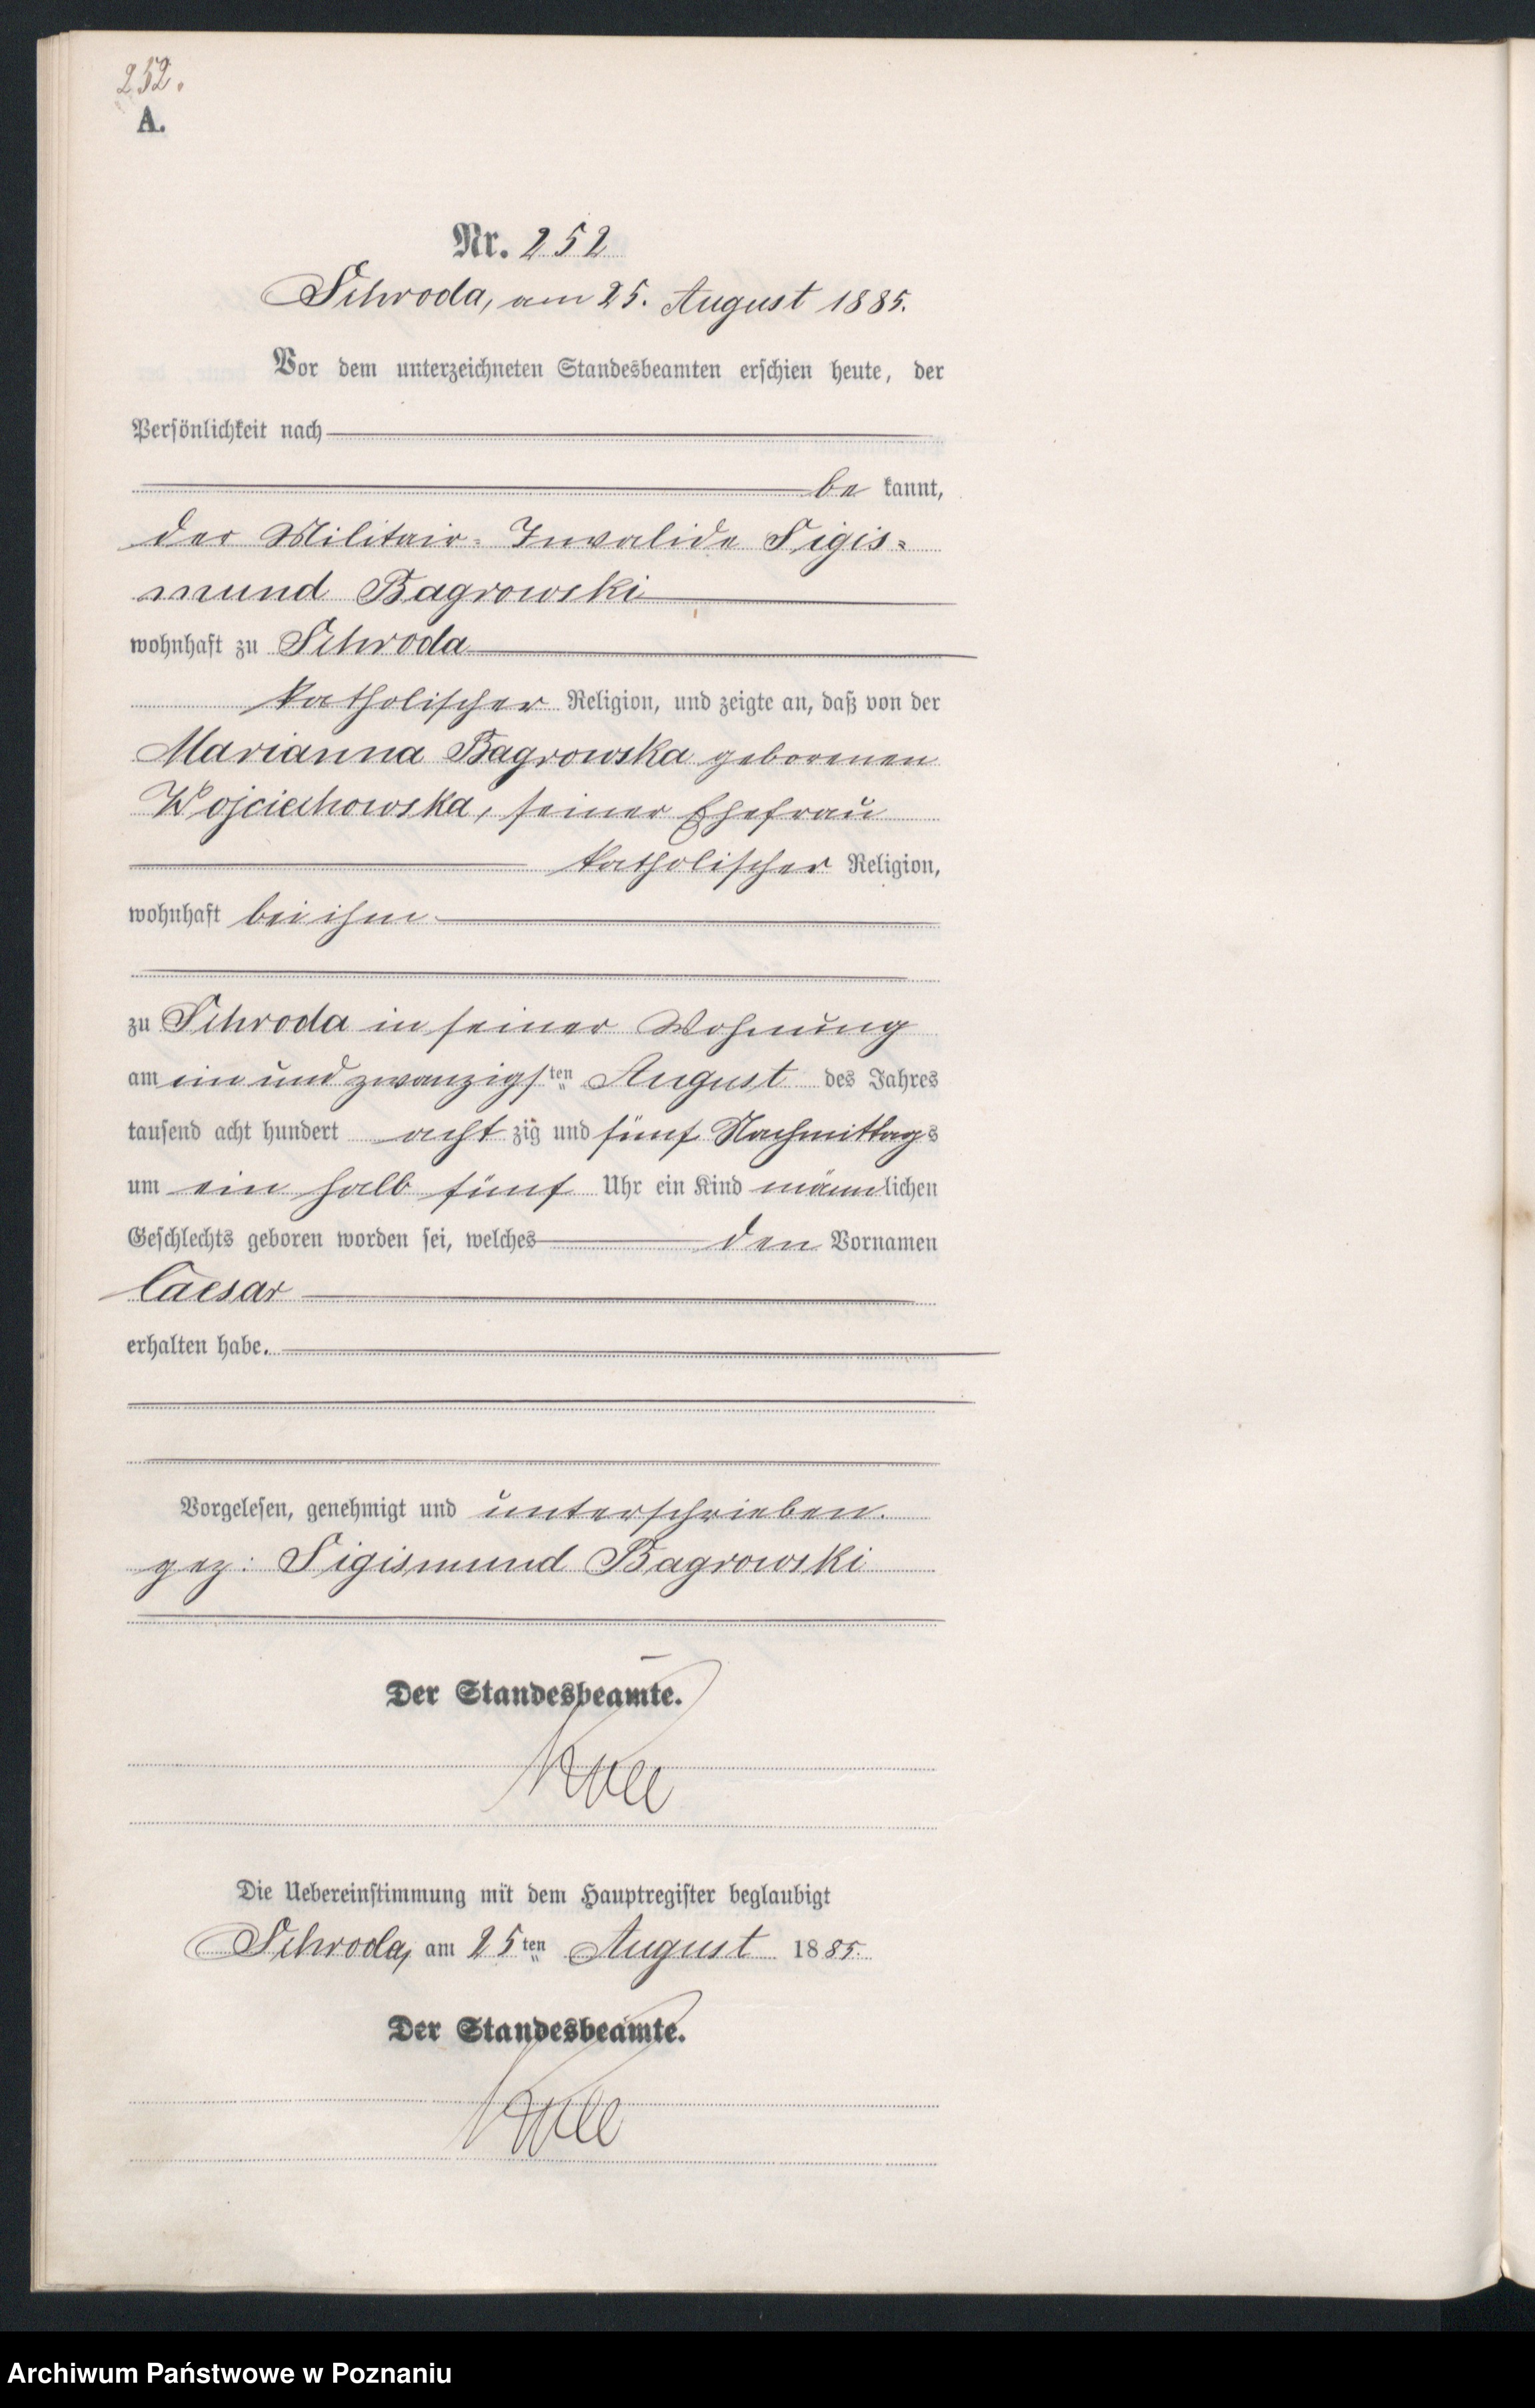 252.
A.
Nr. 252
Schroda, am 25. August 1885.
Vor dem unterzeichneten Standesbeamten erschien heute, der
Persönlichkeit nach
be kannt,
der Militair-Invalide Sigis=
mund Bagrowski
wohnhaft zu Schroda
katholischer Religion, und zeigte an, daß von der
Marianna Bagrowska geborenen
Wojciechowska, seiner Ehefrau
katholischer Religion,
wohnhaft bei ihm
zu Schroda in seiner Wohnung
am ein und zwanzigsten August des Jahres
tausend acht hundert acht zig und fünf Nachmittags
um ein halb fünf Uhr ein Kind männlichen
Geschlechts geboren worden sei, welches den Vornamen
Caesar
erhalten habe.
Vorgelesen, genehmigt und unterschrieben.
gez: Sigismund Bagrowski
Der Standesbeamte.
Die Uebereinstimmung mit dem Hauptregister beglaubigt
Schroda, am 25ten August 1885.
Der Standesbeamte.
Archiwum Państwowe w Poznaniu